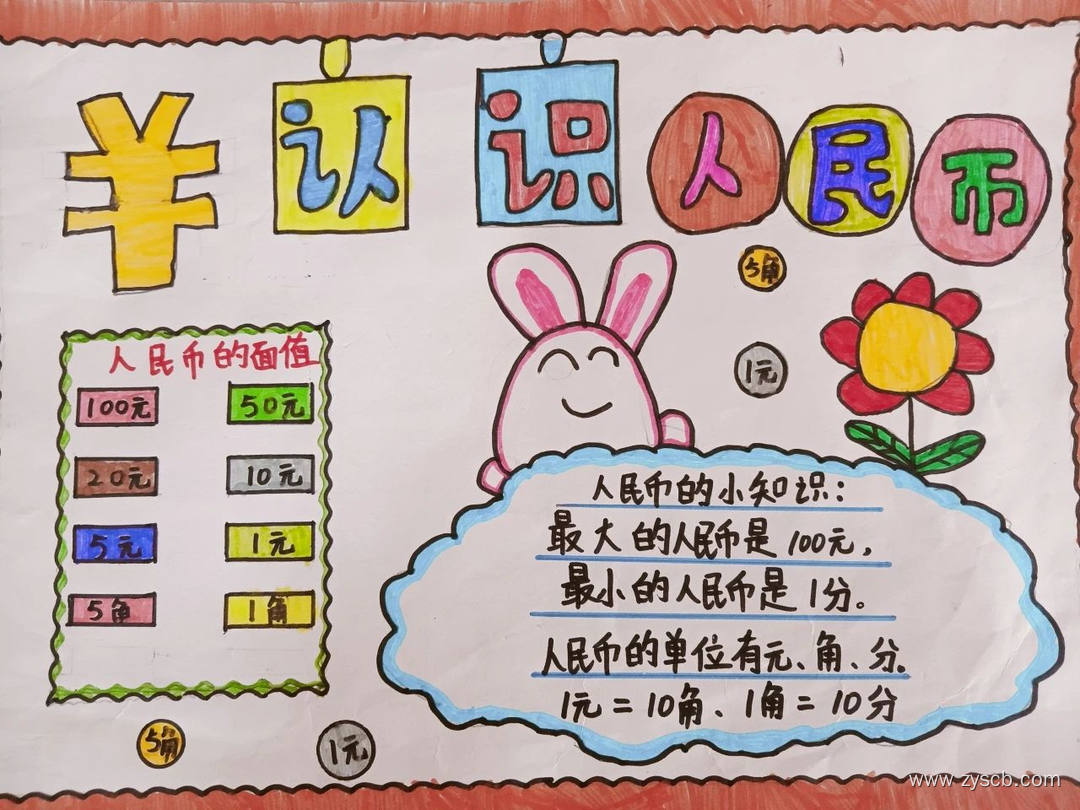 ¥
认识人民币
5角
1元
人民币的面值
100元 50元
20元 10元
5元 1元
5角 1角
人民币的小知识:
最大的人民币是100元,
最小的人民币是1分。
人民币的单位有元、角、分.
1元=10角、1角=10分
5角 1元
www.zyscb.com